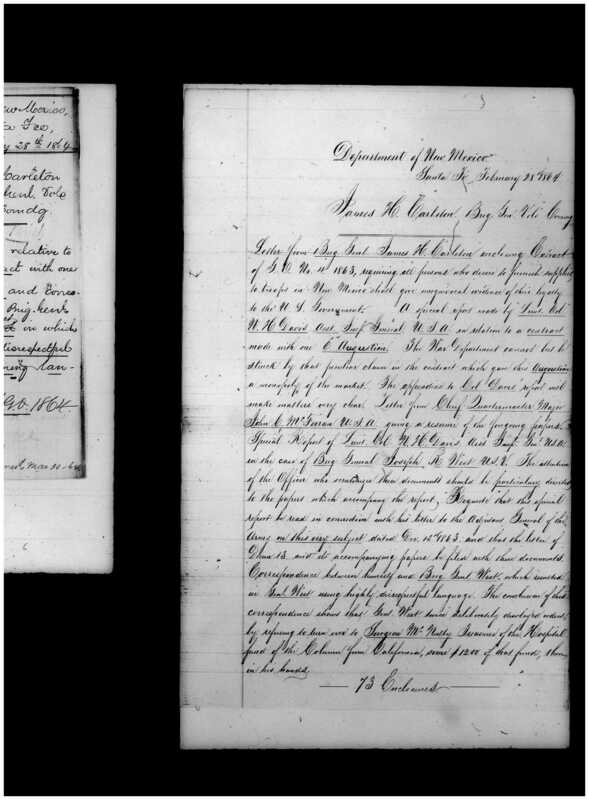 ew Mexico,
a Fee,
y 28th 1864
Carleton
Genl. Vols
Comdg.
relative to
act with one
and Corres-
Brig. Genl.
in which
disrespectful
ing lan-
G.O. 1864
Mar 30-64
Department of New Mexico
Santa Fe February 28" 1864
James H. Carleton, Brig. Gen. Vols. Comng
Letter from Brig Genl. James H. Carleton enclosing Extract
of G. O. No. 11 1863, requiring all persons who desire to furnish supplies
to troops in New Mexico shall give unequivocal evidence of their loyalty
to the U. S. Government. A special report made by Lieut. Col.
N. H. Davis Asst. Insp. General U. S. A. in relation to a contract
made with one C Augustine. The War Department cannot but be
struck by that peculiar clause in the contract which gave this Augustine
a monopoly of the market. The appendix to Col Davis' report will
make matters very clear. Letter from Chief Quartermaster Major
John C. McFerran U. S. A. giving a resume of the foregoing papers.
Special Report of Lieut. Col. N. H. Davis Asst Insp. Genl U.S.A.
in the case of Brig General Joseph R West U.S.V. The attention
of the Officer who scrutinizes these documents should be particularly directed
to the papers which accompany the report, Requests that this special
report be read in connection with his letter to the Adjutant General of the
Army on this very subject dated Dec. 12" 1863. and that the letter of
and its accompanying papers be filed with these documents.
Correspondence between himself and Brig Genl West, which resulted
in Genl West using highly disrespectful language. The conclusion of this
correspondence shows that Genl West twice deliberately disobeyed orders
by refusing to turn over to Surgeon McNulty Treasurer of the Hospital
fund of the Column from California, some $1200 of that fund, then
in his hands.
73 Enclosures